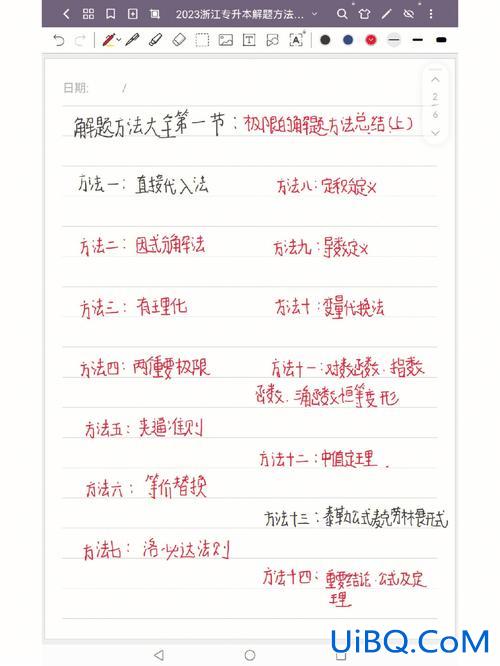 2023浙江专升本解题方法...
日期: /
2
6
解题方法大全第一节：极限的解题方法总结(上)
方法一：直接代入法
方法二：因式分解法
方法三：有理化
方法四：两个重要极限
方法五：夹逼准则
方法六：等价替换
方法七：洛必达法则
方法八：定积分定义
方法九：导数定义
方法十：变量代换法
方法十一：对数函数．指数
函数．三角函数恒等变形
方法十二：中值定理．
方法十三：泰勒公式麦克劳林展开式
方法十四：重要结论．公式及定
理
UiBQ.CoM